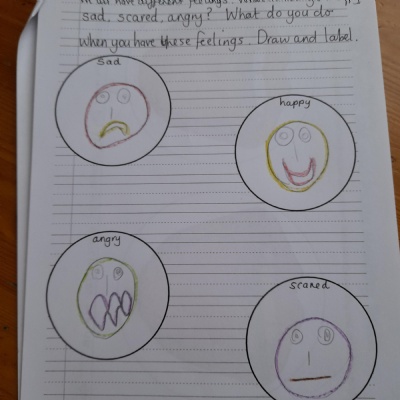 all have different feelings.
sad, scared, angry? What do you do
when you have these feelings. Draw and label.
sad
happy
angry
scared